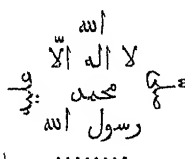 الله
لا اله الا
محمد
رسول الله